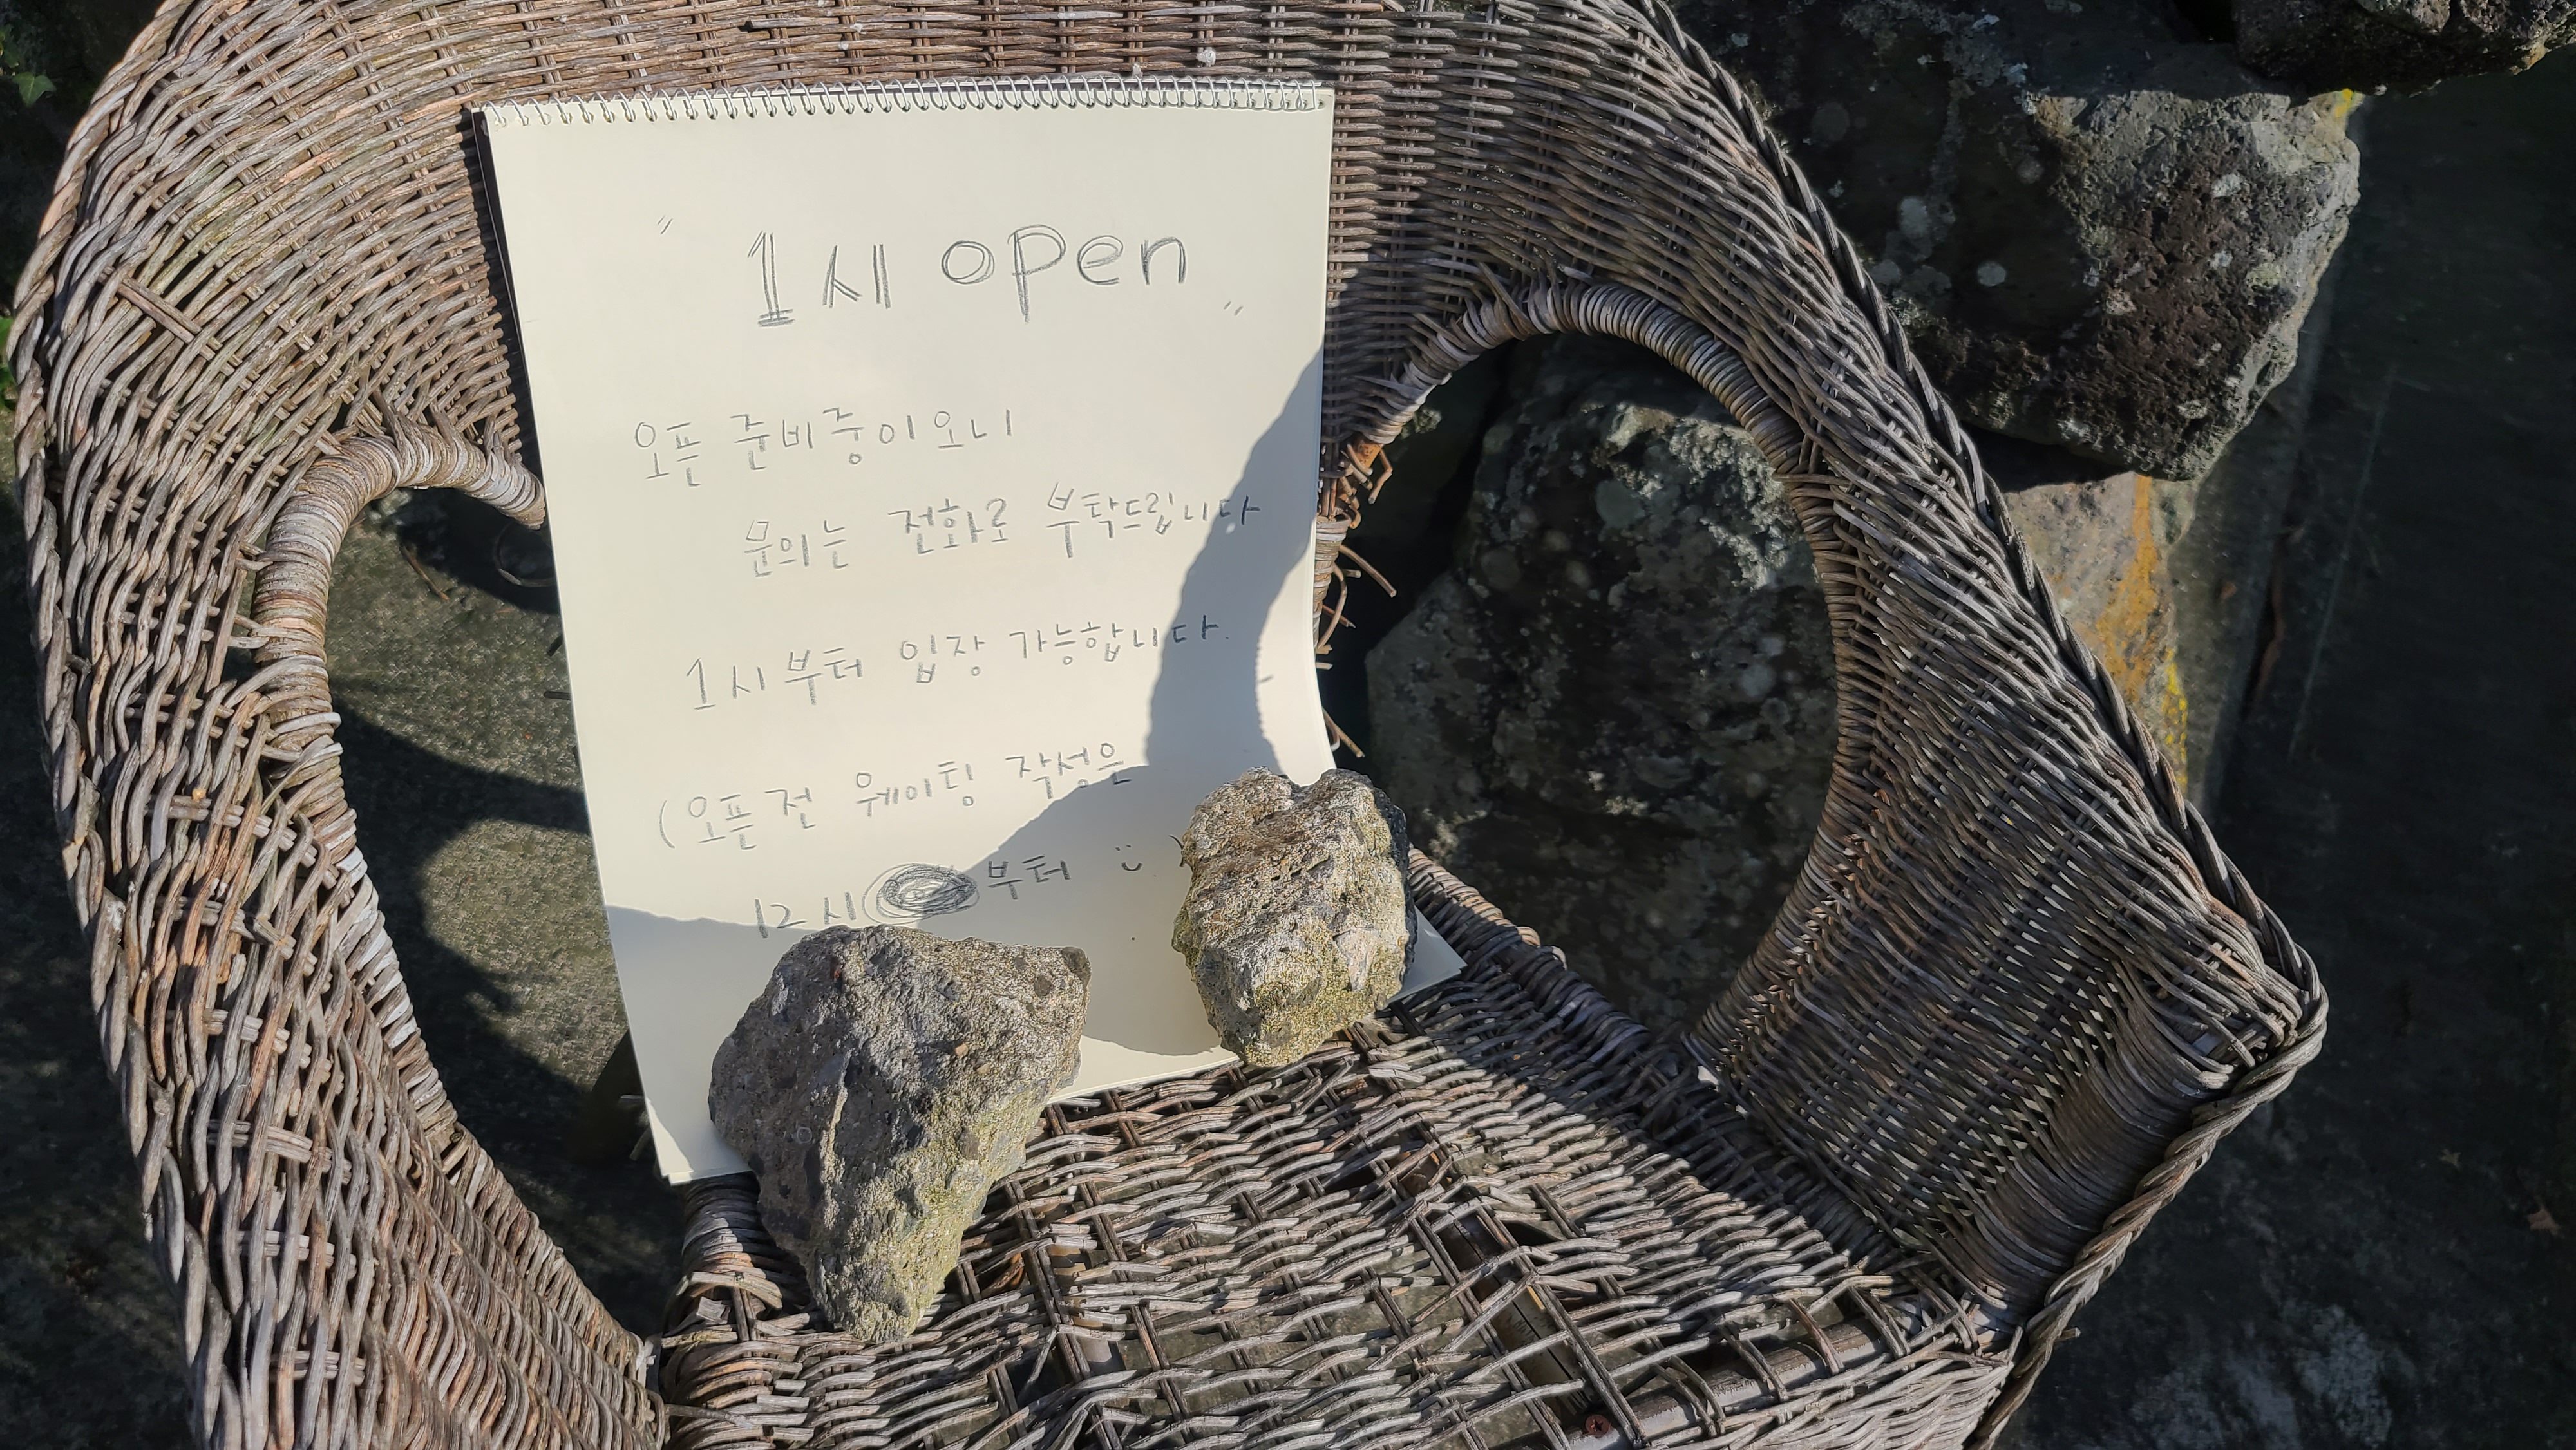 " 1시 open "
오픈 준비중이오니
문의는 전화로 부탁드립니다
1시부터 입장 가능합니다.
(오픈전 웨이팅 작성은
12시 부터 :)